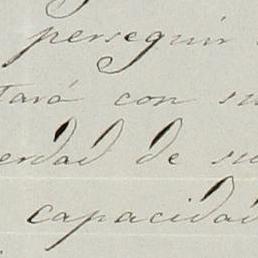 perseguir
tará con su
erdad de su
capacidad